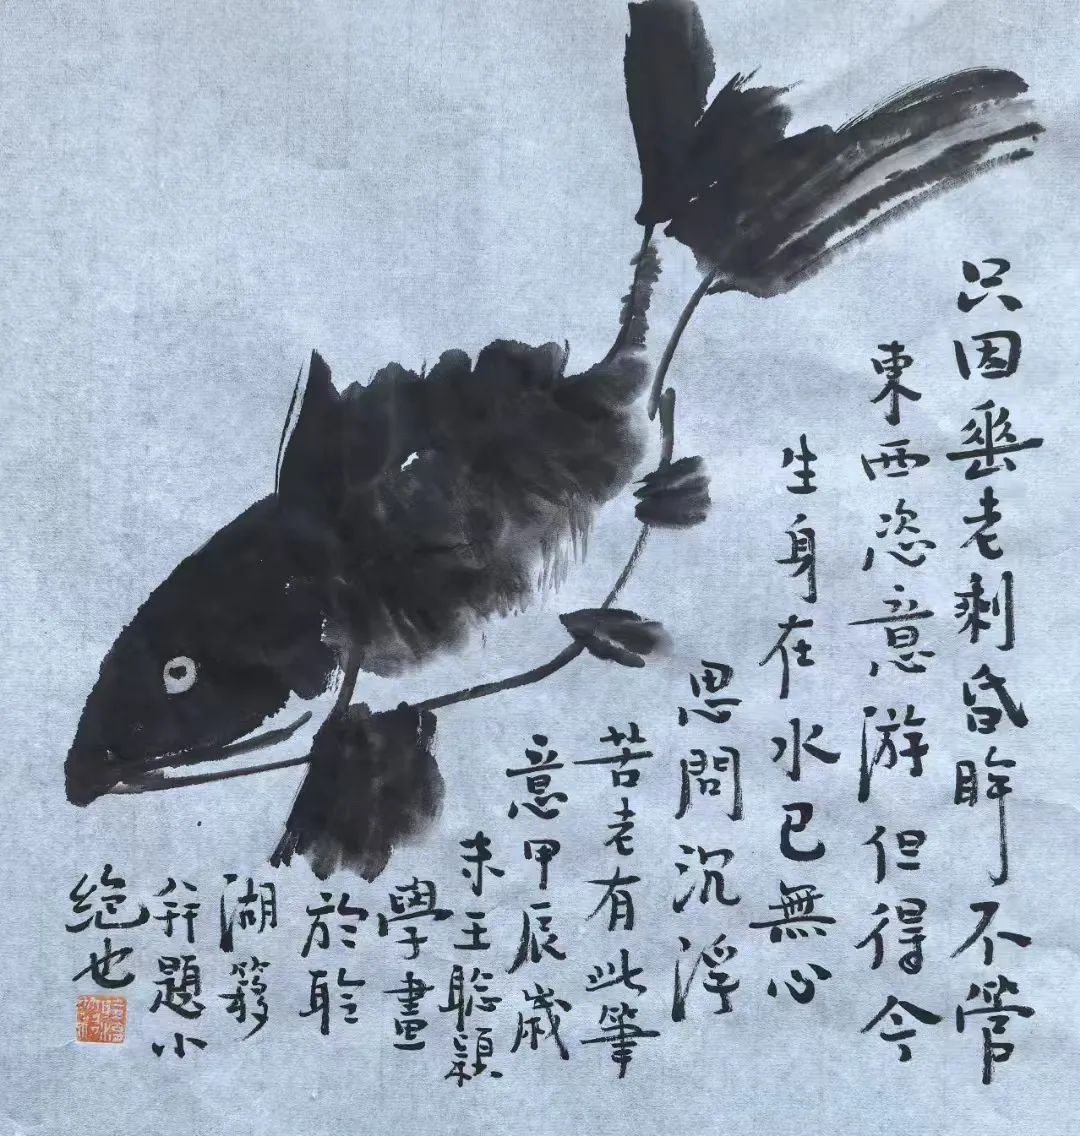 只因垂老剩昏眸不管
東西恣意游但得今
生身在水已無心
思問沉浮
苦老有此筆
意甲辰歲
末王聰穎
學畫
於聆
湖簃
并題小
絶也